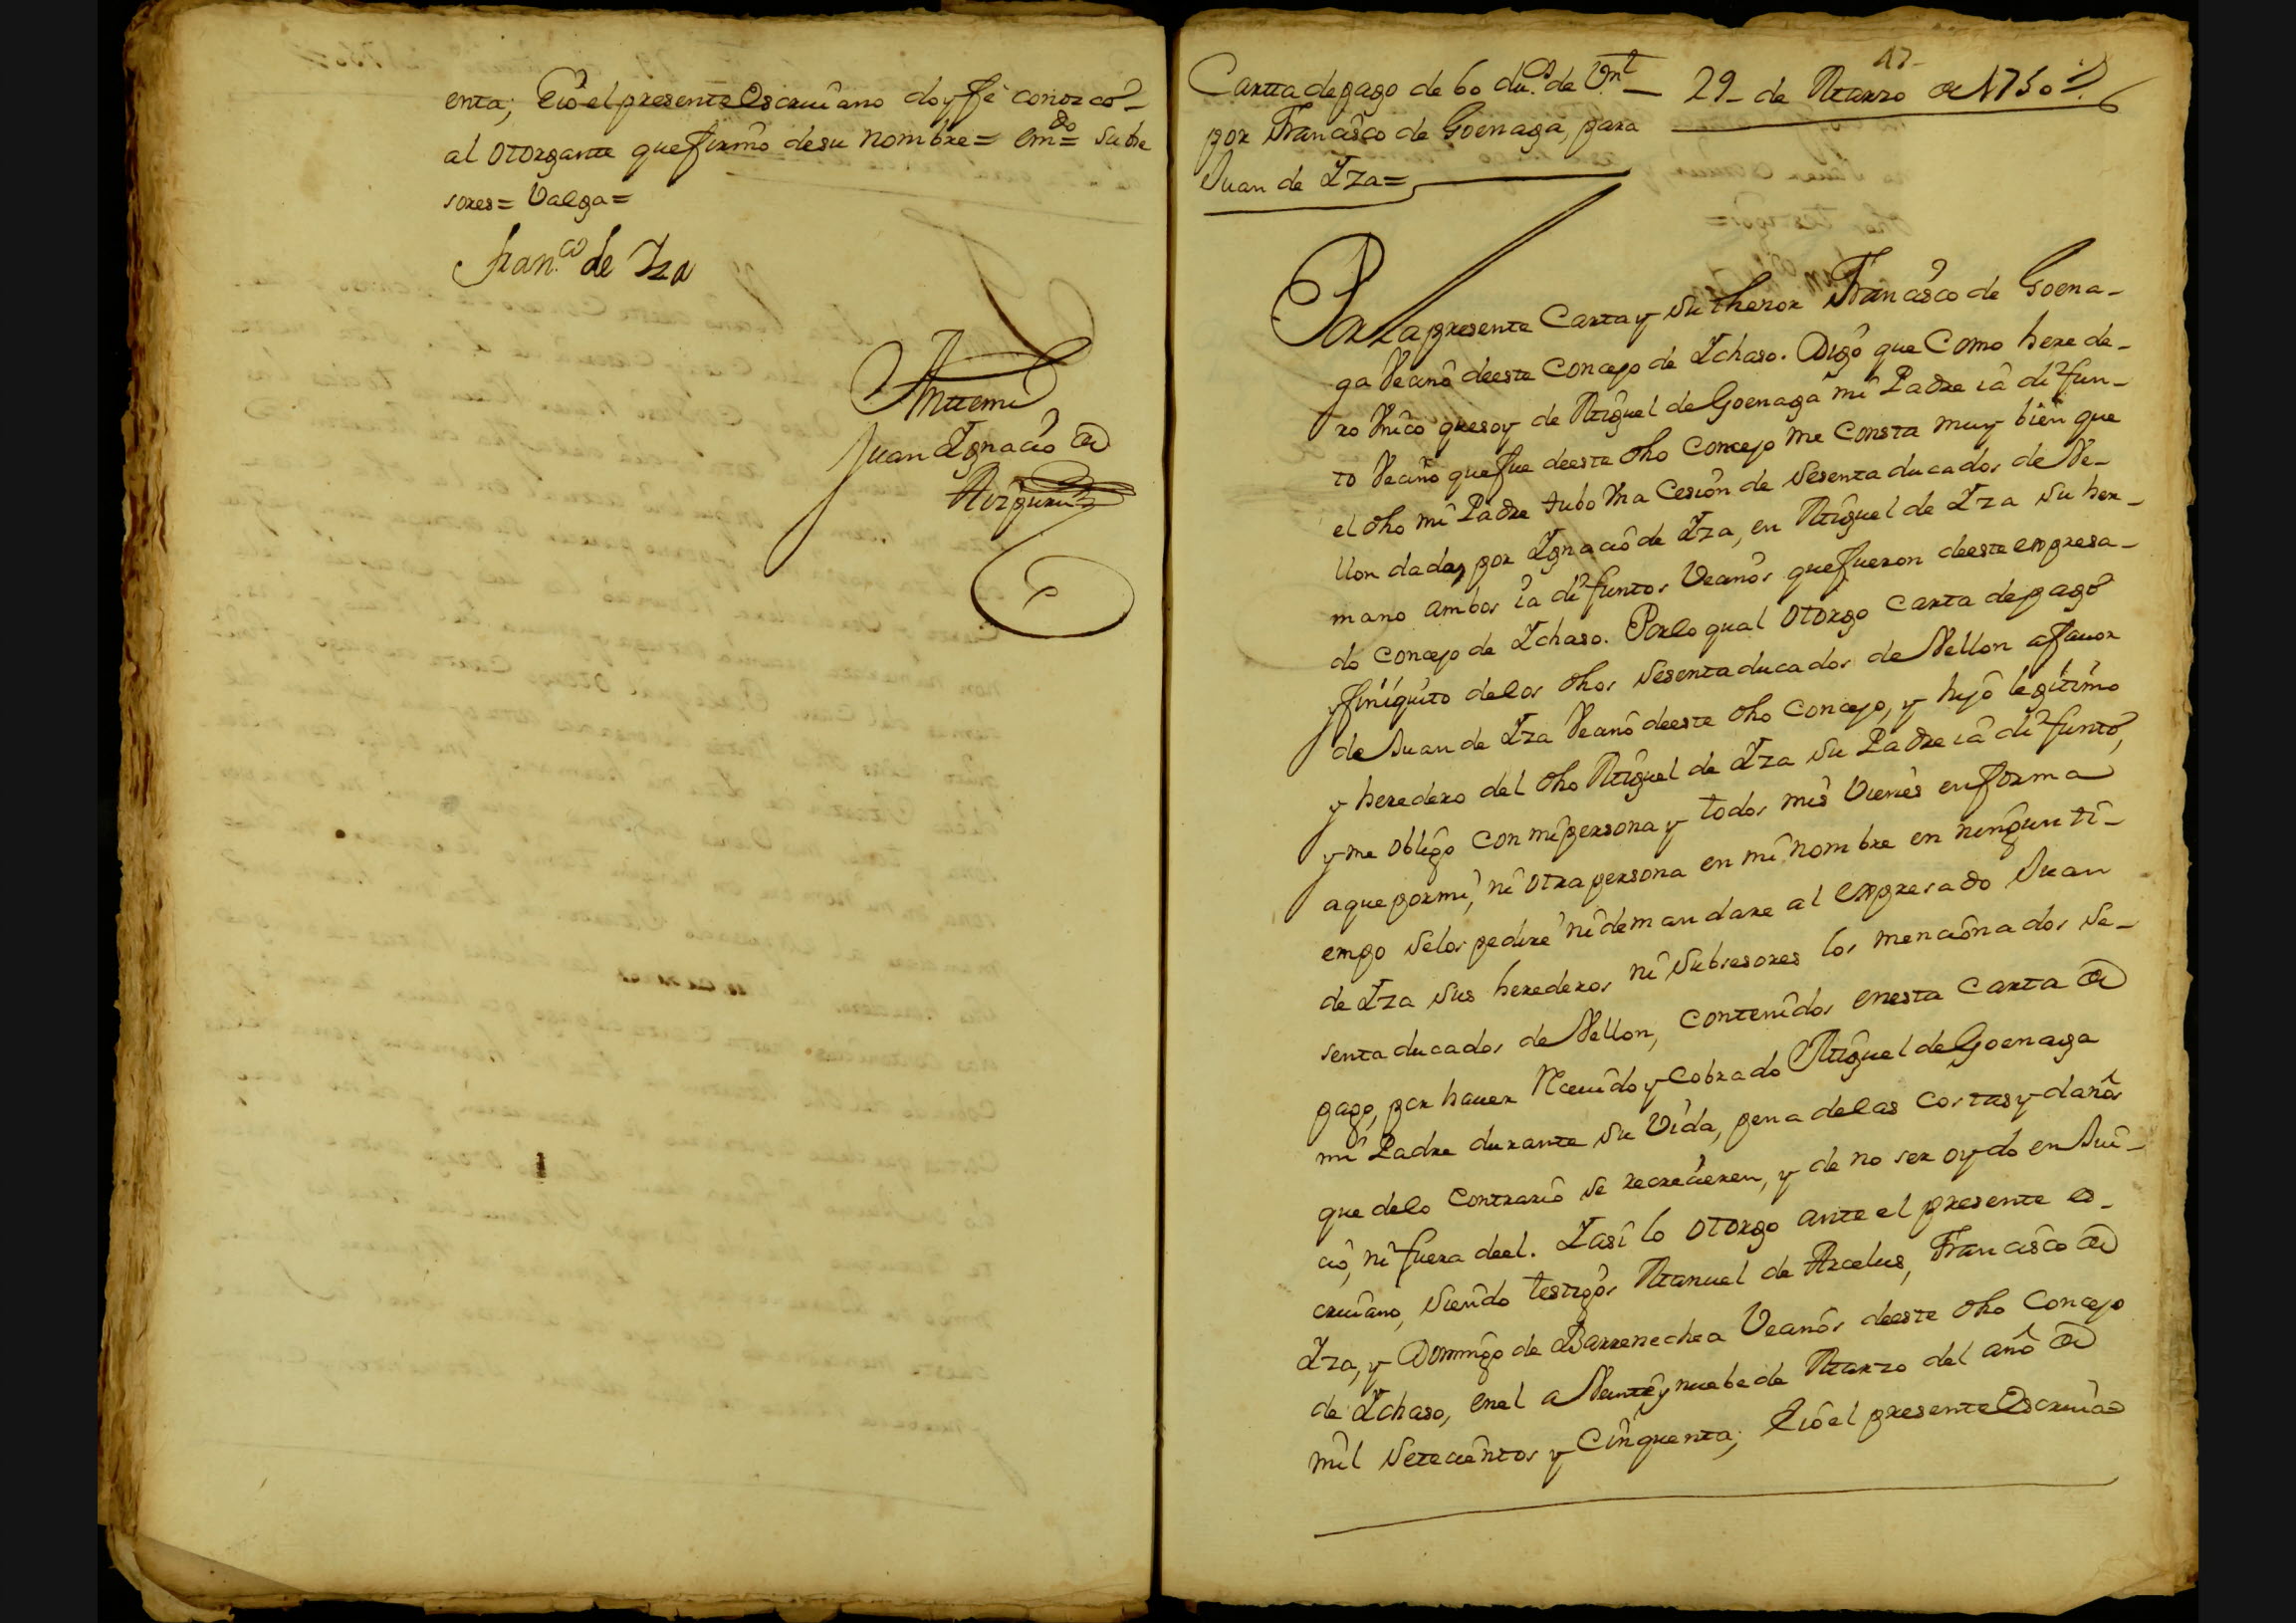 enta; Eio el presente Escriuano doy fe conozco
al otorgante que firmo desu nombre= em.do= Subse
sores= Valga=
Fran.co de Iza
Anttemi
Juan Ignacio de
Aizpuru
17
Cartta de pago de 60 du.os de V.n
por Francisco de Goenaga, para
Juan de Iza=
29 de Marzo de 1750
Por la presente Carta y su thenor Francisco de Goena-
ga Vecino deeste Concejo de Ichaso. Digo que Como herede-
ro Vnico quesoy de Miguel de Goenaga mi Padre ia difun-
to Vecino que fue deeste dho Concejo me Consta muy bien que
el dho mi Padre tubo Vna Cesion de Sesenta ducados de Ve-
llon dada, por Ignacio de Iza, en Miguel de Iza su her-
mano ambos ia difuntos Vecinos que fueron deeste expresa-
do Concejo de Ichaso. Porlo qual otorgo Carta de pago
y finiquito delos dhos Sesenta ducados de Vellon afauor
de Juan de Iza Vecino deeste dho Concejo, y hijo legitimo
y heredero del dho Miguel de Iza su Padre ia difunto,
y me obligo con mi persona y todos mis Vienes en forma
a que por mi, ni otra persona en mi nombre en ningun ti-
empo selos pedire ni demandare al expresado Juan
de Iza sus herederos ni Subsesores los mencionados Se-
senta ducados de Vellon, contenidos enesta Carta de
pago, por hauer Receuido y Cobrado Miguel de Goenaga
mi Padre durante su Vida, pena delas costas y daños
que delo Contrario se recrecieren, y de no ser oydo en Jui-
cio, ni fuera deel. Iasi lo otorgo ante el presente es-
criuano, siendo testigos Manuel de Arcelus, Francisco de
Iza, y Domingo de Barrenechea Vecinos deeste dho Concejo
de Ichaso, enel a Veinte y nuebe de Marzo del año de
mil Setecientos y Cinquenta; Eio el presente Escriua=